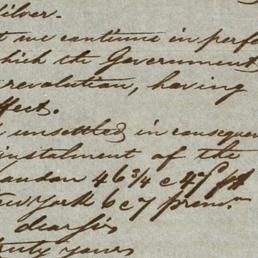 silver.
t we continue in perfe
which the Government
revolution, having
ffect.
unsettled in consequen
instalment of the
London 46 3/4 @ 47 pt
New York 6 @ 7 prem.
dear Sir
truly yours